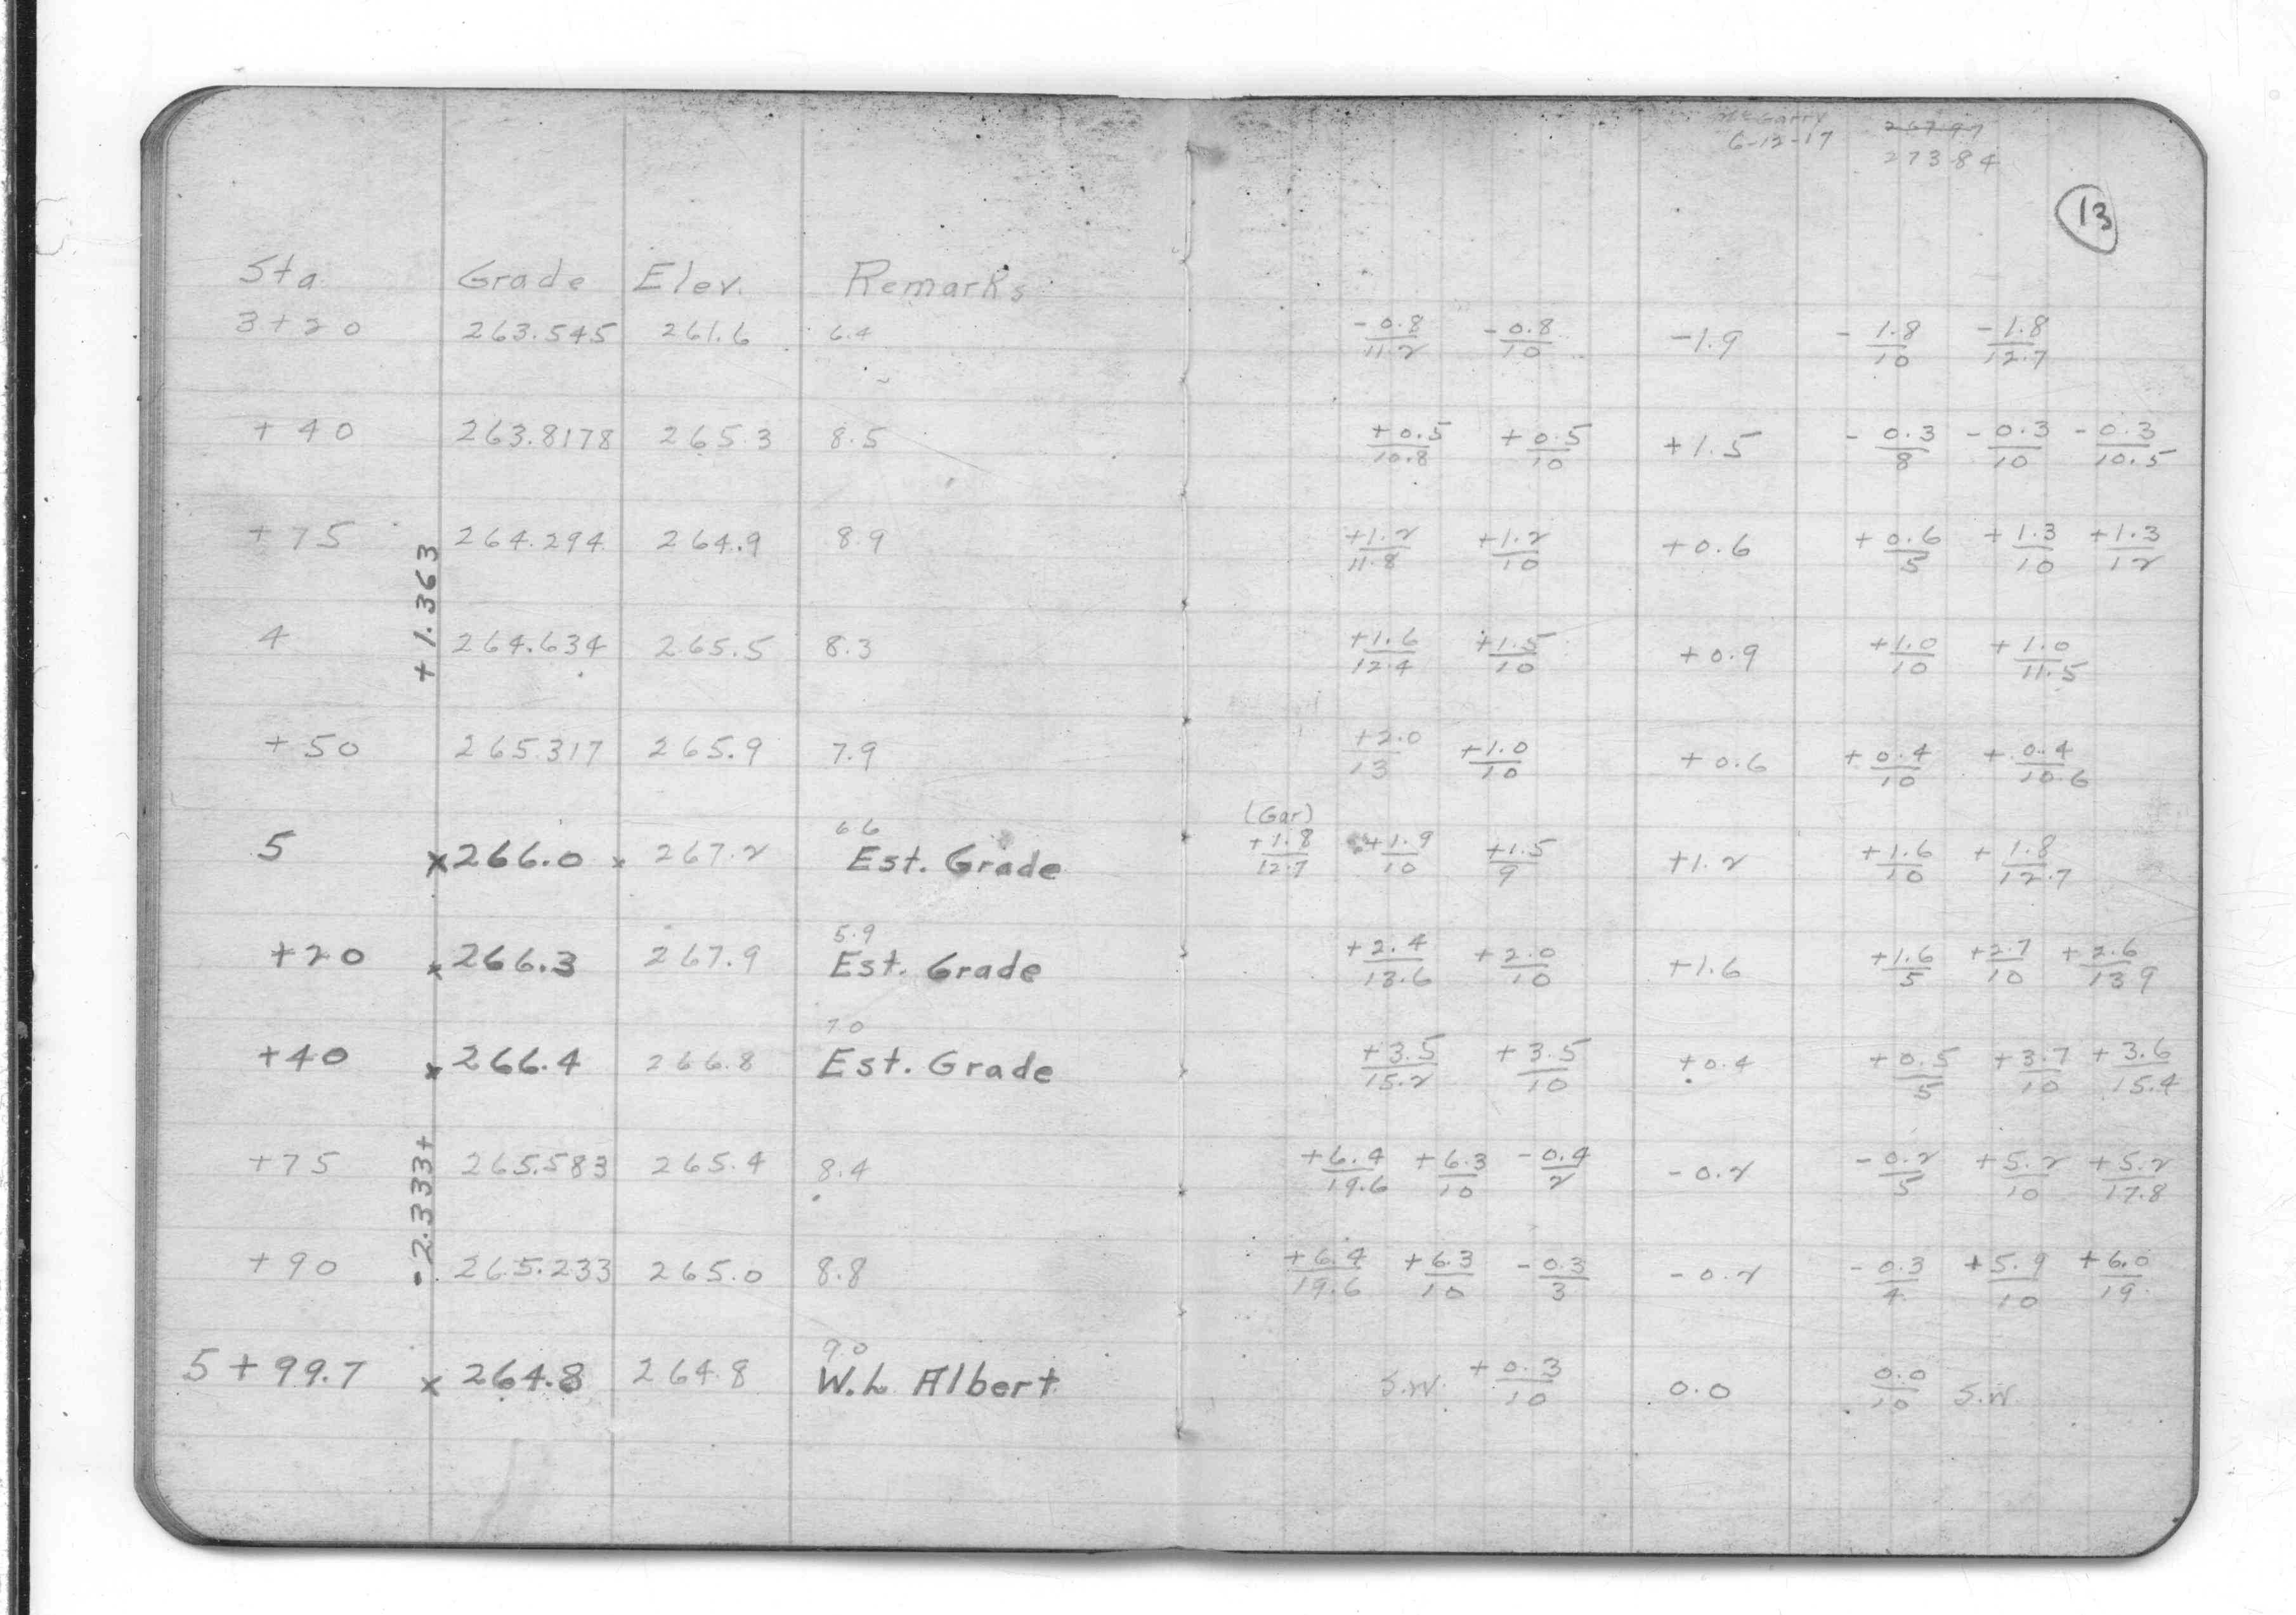 McGarry
6-12-17
267.97
273.84
13
Sta Grade Elev. Remarks
3+20 263.545 261.6 6.4 -0.8/11.2 -0.8/10 -1.9 -1.8/10 -1.8/12.7
+40 263.8178 265.3 8.5 +0.5/10.8 +0.5/10 +1.5 -0.3/8 -0.3/10 -0.3/10.5
+75 264.294 264.9 8.9 +1.2/11.8 +1.2/10 +0.6 +0.6/5 +1.3/10 +1.3/12
+1.363
4 264.634 265.5 8.3 +1.6/12.4 +1.5/10 +0.9 +1.0/10 +1.0/11.5
+50 265.317 265.9 7.9 +2.0/13 +1.0/10 +0.6 +0.4/10 +0.4/10.6
6 6 (Gar)
5 x 266.0 x 267.2 Est. Grade +1.8/12.7 +1.9/10 +1.5/9 +1.2 +1.6/10 +1.8/12.7
5.9
+20 x 266.3 267.9 Est. Grade +2.4/13.6 +2.0/10 +1.6 +1.6/5 +2.7/10 +2.6/13.9
7 0
+40 x 266.4 266.8 Est. Grade +3.5/15.2 +3.5/10 +0.4 +0.5/5 +3.7/10 +3.6/15.4
+75 265.583 265.4 8.4 +6.4/19.6 +6.3/10 -0.4/2 -0.2 -0.2/5 +5.2/10 +5.2/17.8
-2.333+
+90 265.233 265.0 8.8 +6.4/19.6 +6.3/10 -0.3/3 -0.2 -0.3/4 +5.9/10 +6.0/19
9.0
5+99.7 x 264.8 264.8 W.L Albert S.W. +0.3/10 0.0 0.0/10 S.W.